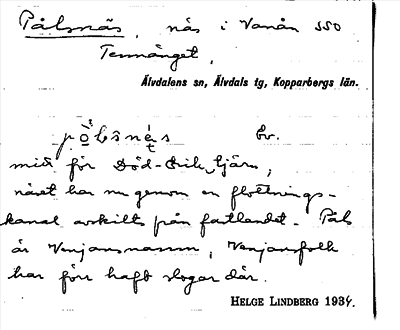 Pålsnäs, näs i Vanån SSO
Tennänget,
Älvdalens sn, Älvdals tg, Kopparbergs län.
bv.
mitt för Död-Erik-tjärn,
näset har nu genom en flottnings-
kanal avskilts från fastlandet. Påls
är Venjansnamn, Venjansfolk
har förr haft slogar där.
HELGE LINDBERG 1934.